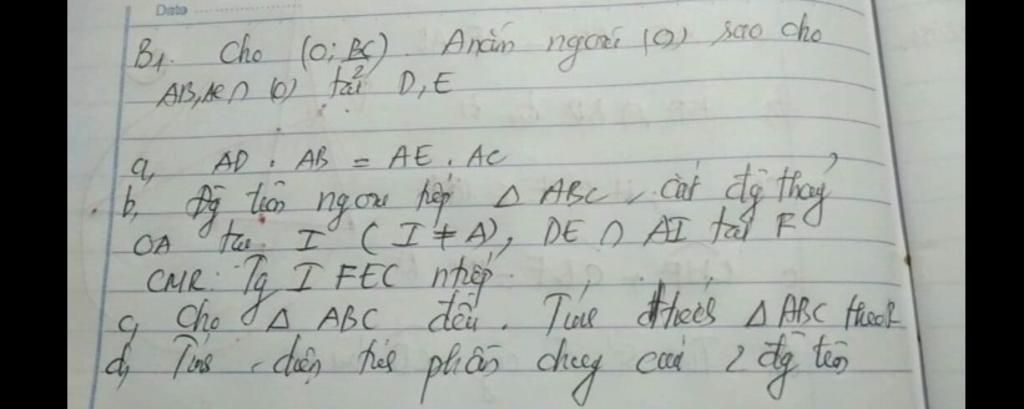 Date
B1. Cho (O; BC/2). A nằm ngoài (O) sao cho
AB, AC ∩ (O) tại D, E
a, AD . AB = AE . AC
b, Đg tròn ngoại tiếp Δ ABC, cắt đg thẳng
OA tại I (I ≠ A), DE ∩ AI tại F
CMR: Tg IFEC ntiếp.
c, Cho Δ ABC đều. Tính dtích Δ ABC theo R
d, Tính diện tích phần chung của 2 đg tròn